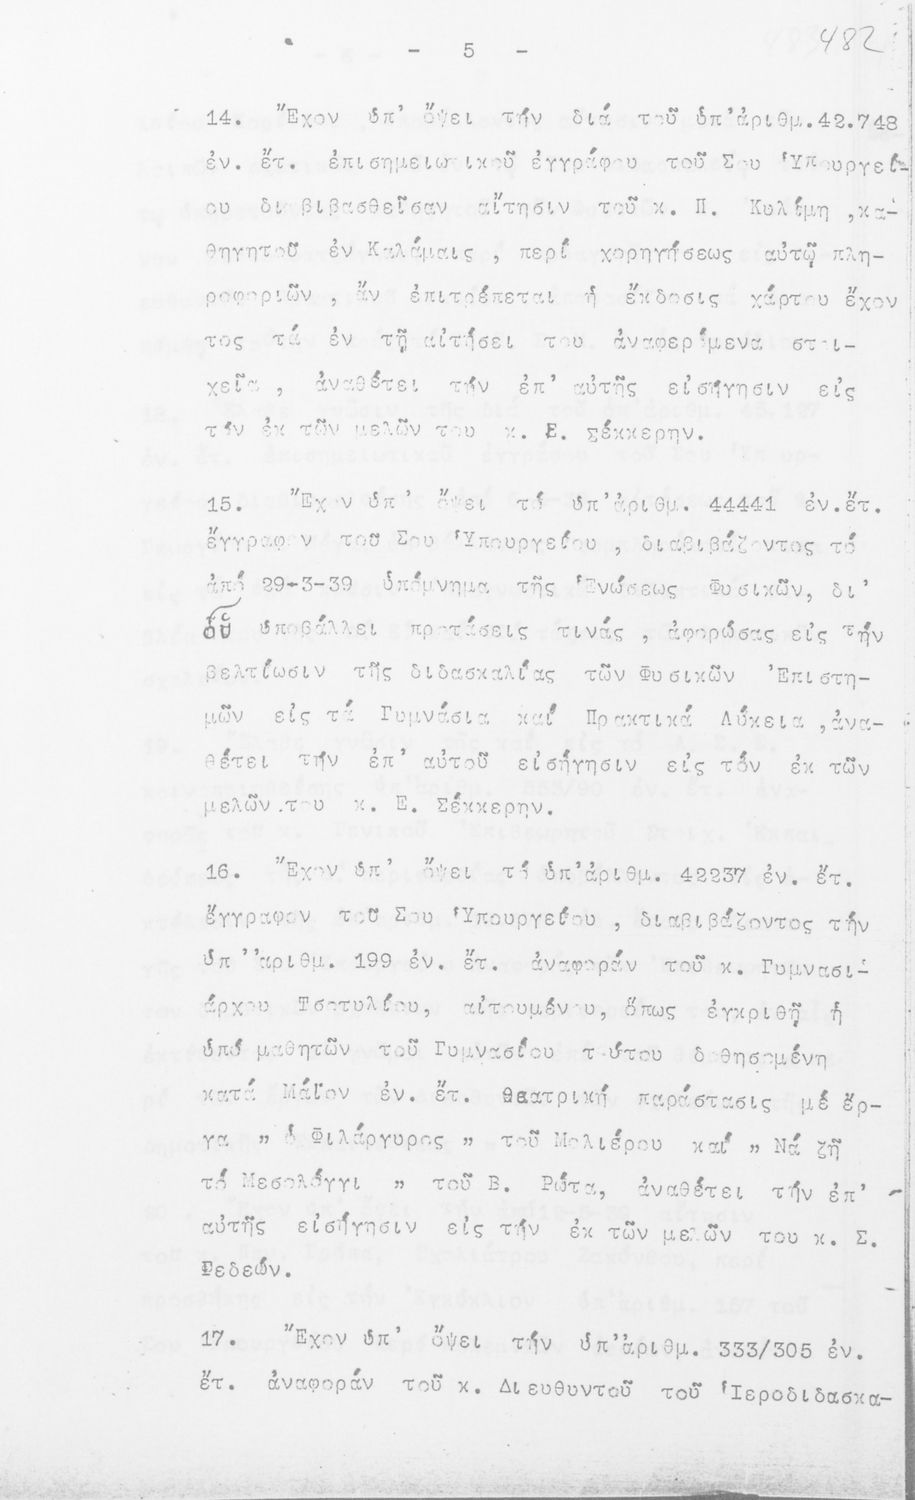 - 5 -
482
14. Ἔχον ὑπ' ὄψει τήν διά τοῦ ὑπ'ἀριθμ.42.748
ἐν. ἔτ. ἐπισημειωτικοῦ ἐγγράφου τοῦ Σου Ὑπουργεί-
ου διαβιβασθεῖσαν αἴτησιν τοῦ κ. Π. Κυλίμη ,κα-
θηγητοῦ ἐν Καλάμαις , περί χορηγήσεως αὐτῷ πλη-
ροφοριῶν , ἄν ἐπιτρέπεται ἡ ἔκδοσις χάρτου ἔχον
τος τά ἐν τῇ αἰτήσει του ἀναφερόμενα στοι-
χεῖα , ἀναθέτει τήν ἐπ' αὐτῆς εἰσήγησιν εἰς
τόν ἐκ τῶν μελῶν του κ. Ε. Σέκκερην.
15. Ἔχον ὑπ' ὄψει τό ὑπ'ἀριθμ. 44441 ἐν.ἔτ.
ἔγγραφον τοῦ Σου Ὑπουργείου , διαβιβάζοντος τό
ἀπό 29-3-39 ὑπόμνημα τῆς Ἑνώσεως Φυσικῶν, δι'
οὗ ὑποβάλλει προτάσεις τινάς , ἀφορώσας εἰς τήν
βελτίωσιν τῆς διδασκαλίας τῶν Φυσικῶν Ἐπιστη-
μῶν εἰς τά Γυμνάσια καί Πρακτικά Λύκεια ,ἀνα-
θέτει τήν ἐπ' αὐτοῦ εἰσήγησιν εἰς τόν ἐκ τῶν
μελῶν του κ. Ε. Σέκκερην.
16. Ἔχον ὑπ' ὄψει τό ὑπ'ἀριθμ. 42237 ἐν. ἔτ.
ἔγγραφον τοῦ Σου Ὑπουργείου , διαβιβάζοντος τήν
ὑπ'ἀριθμ. 199 ἐν. ἔτ. ἀναφοράν τοῦ κ. Γυμνασι-
άρχου Τσοτυλίου, αἰτουμένου, ὅπως ἐγκριθῇ ἡ
ὑπό μαθητῶν τοῦ Γυμνασίου τούτου δοθησομένη
κατά Μάϊον ἐν. ἔτ. θεατρική παράστασις μέ ἔρ-
γα „ ὁ Φιλάργυρος „ τοῦ Μολιέρου καί „ Νά ζῇ
τό Μεσολόγγι „ τοῦ Β. Ρώτα, ἀναθέτει τήν ἐπ'
αὐτῆς εἰσήγησιν εἰς τήν ἐκ τῶν μελῶν του κ. Σ.
Γεδεών.
17. Ἔχον ὑπ' ὄψει τήν ὑπ'ἀριθμ. 333/305 ἐν.
ἔτ. ἀναφοράν τοῦ κ. Διευθυντοῦ τοῦ Ἱεροδιδασκα-